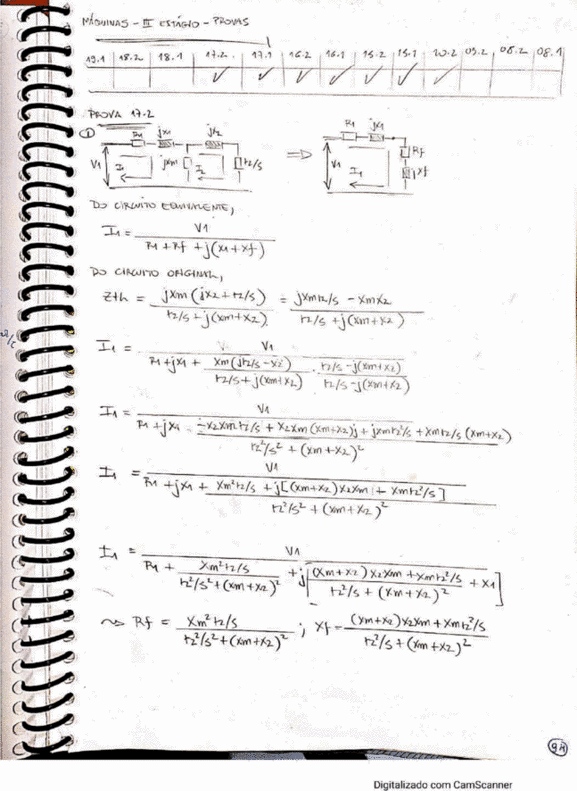 MÁQUINAS - III ESTÁGIO - PROVAS
19.1 18.2 18.1 17.2 17.1 16.2 16.1 15.2 15.1 10.2 09.2 08.2 08.1
✓ ✓ ✓ ✓ ✓ ✓ ✓
PROVA 17.2
① R1 jx1 jx2 V1 I1 jxm I2 r2/s ⇒ R1 jx1 V1 I1 Rf jxf
DO CIRCUITO EQUIVALENTE,
I1 = V1 / (R1 + Rf + j(x1 + xf))
DO CIRCUITO ORIGINAL,
Zth = jxm(jx2 + r2/s) / (r2/s + j(xm+x2)) = (jxmr2/s - xmx2) / (r2/s + j(xm+x2))
I1 = V1 / (R1 + jx1 + xm(jr2/s - x2) / (r2/s + j(xm+x2)) · (r2/s - j(xm+x2)) / (r2/s - j(xm+x2)))
I1 = V1 / (R1 + jx1 (-x2xmr2/s + x2xm(xm+x2)j + jxmr2²/s + xmr2/s(xm+x2)) / (r2²/s² + (xm+x2)²))
I1 = V1 / (R1 + jx1 + (xm²r2/s + j[(xm+x2)x2xm + xmr2²/s]) / (r2²/s² + (xm+x2)²))
I1 = V1 / (R1 + xm²r2/s / (r2²/s² + (xm+x2)²) + j[((xm+x2)x2xm + xmr2²/s) / (r2²/s + (xm+x2)²) + x1])
~> Rf = xm²r2/s / (r2²/s² + (xm+x2)²) ; xf = ((xm+x2)x2xm + xmr2²/s) / (r2²/s + (xm+x2)²)
Digitalizado com CamScanner